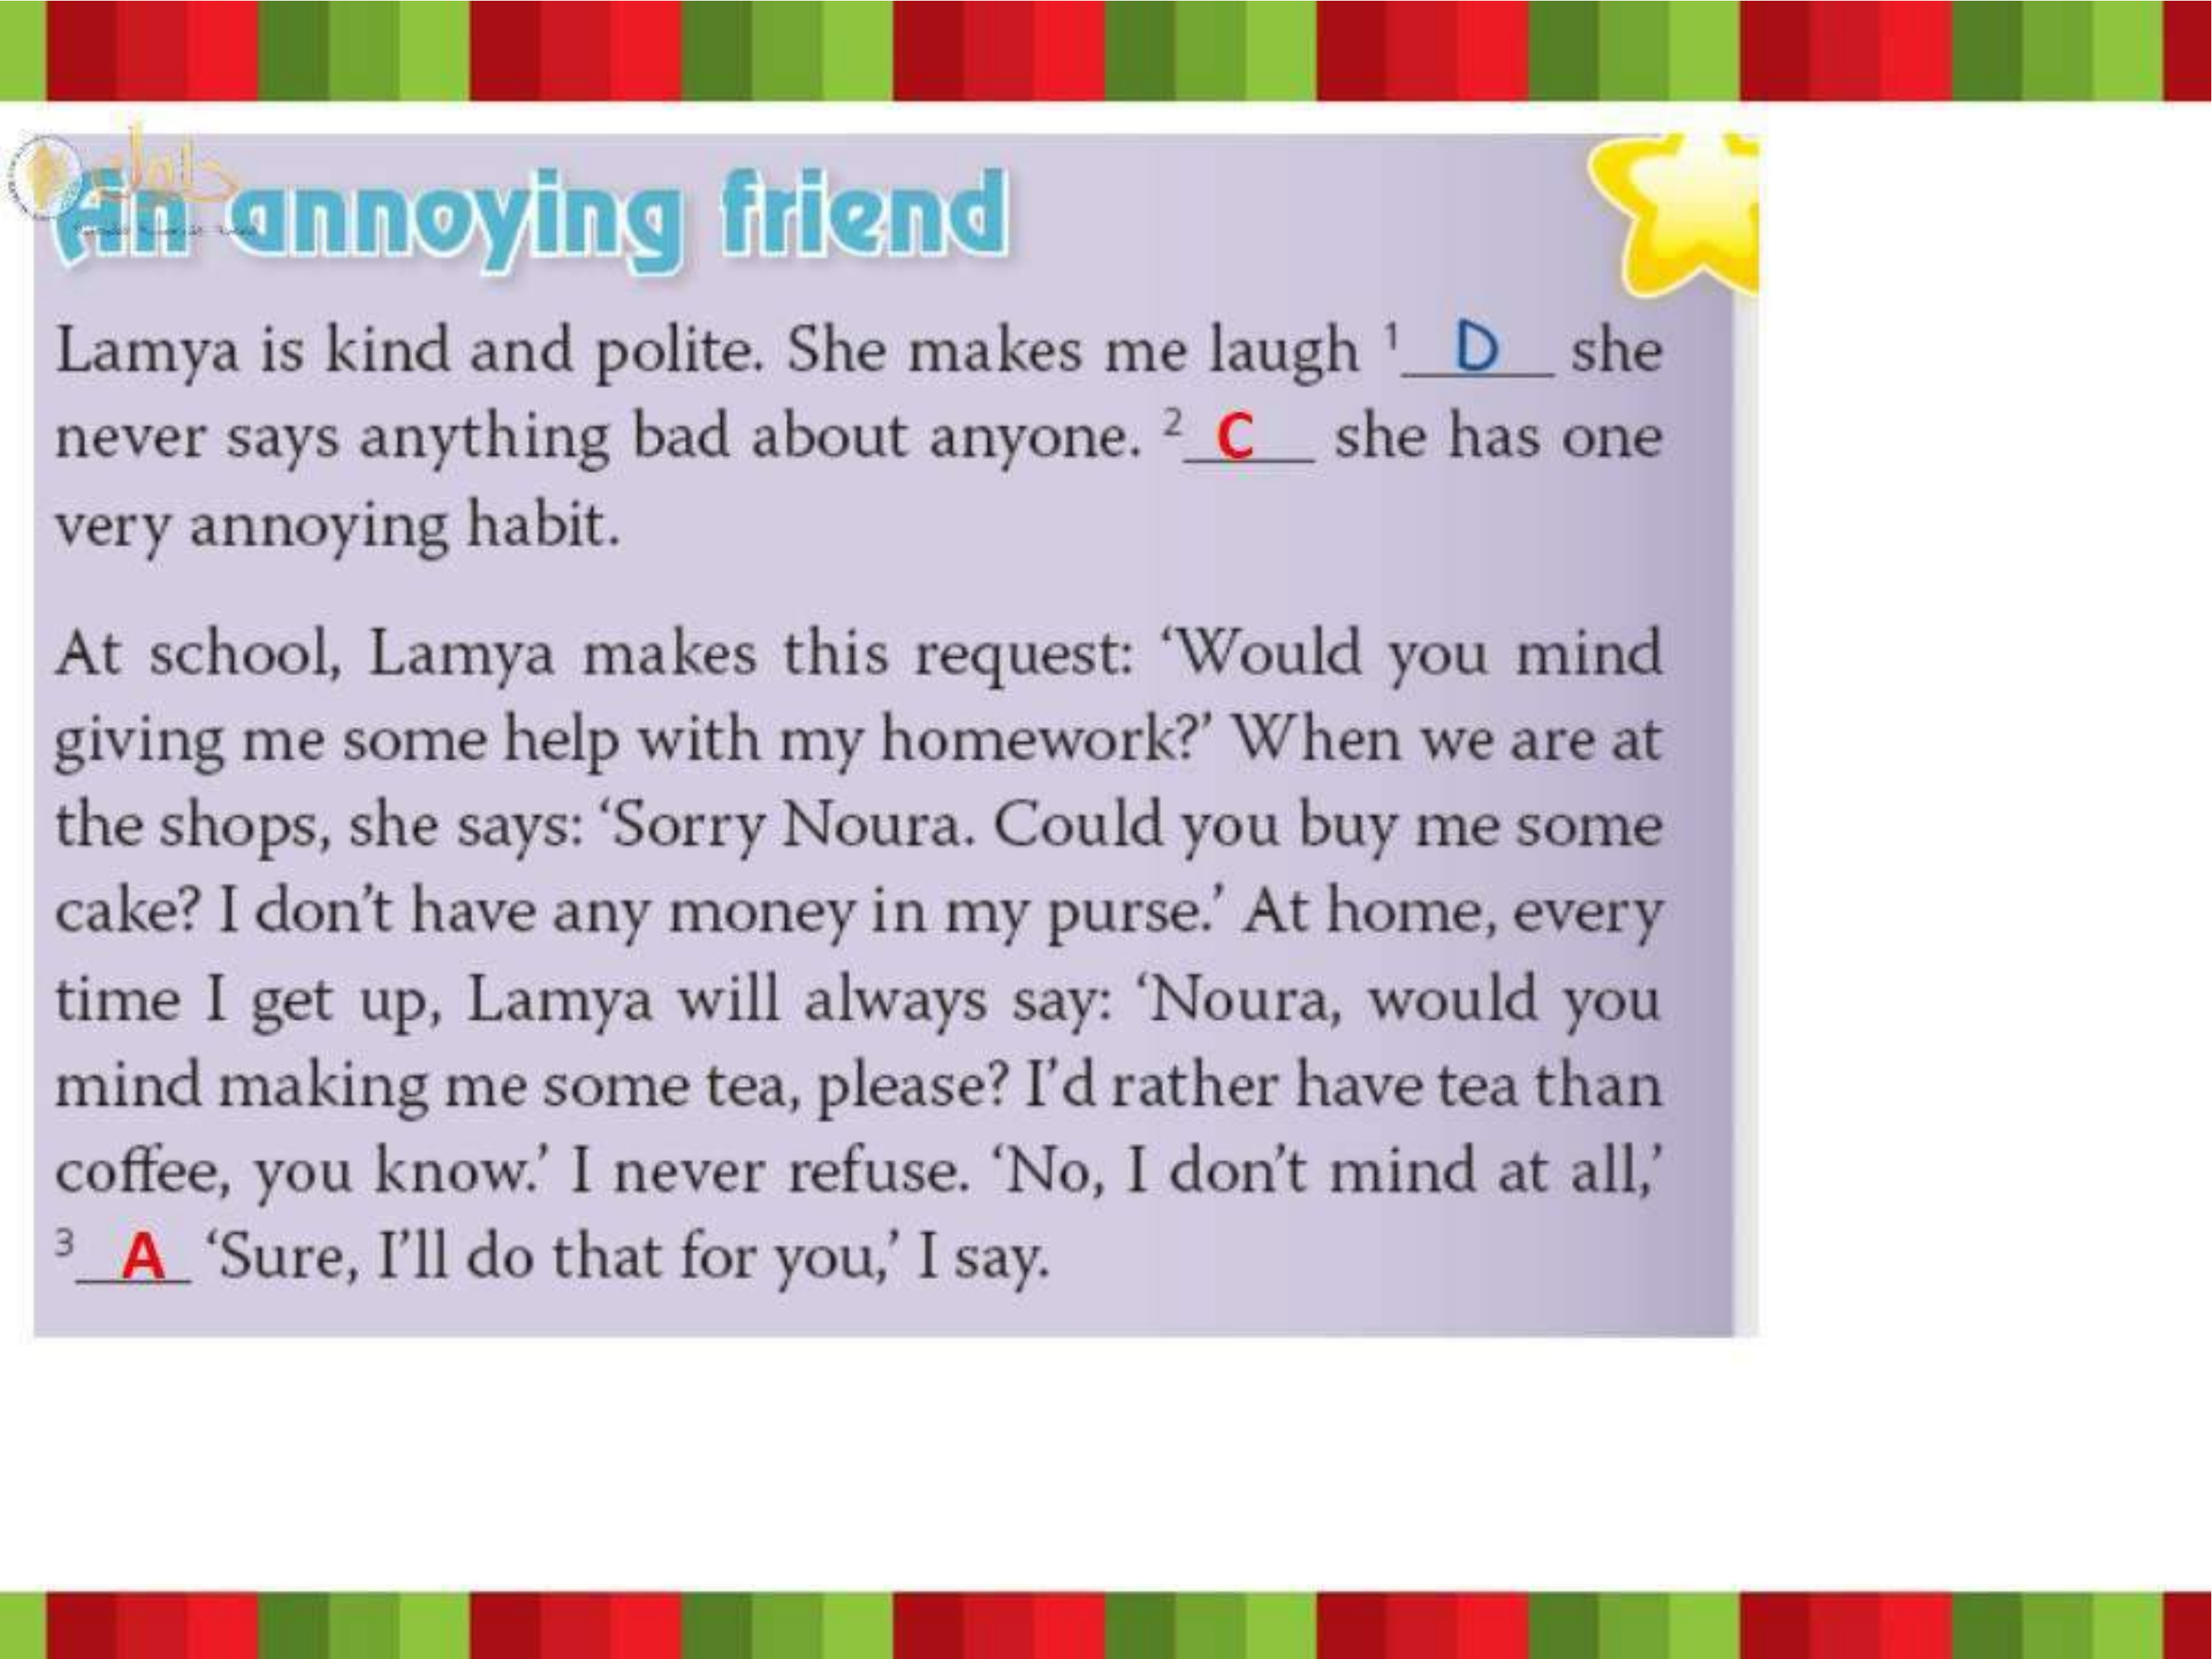 حلول
An annoying friend
Lamya is kind and polite. She makes me laugh ¹ D she
never says anything bad about anyone. ² C she has one
very annoying habit.
At school, Lamya makes this request: ‘Would you mind
giving me some help with my homework?’ When we are at
the shops, she says: ‘Sorry Noura. Could you buy me some
cake? I don’t have any money in my purse.’ At home, every
time I get up, Lamya will always say: ‘Noura, would you
mind making me some tea, please? I’d rather have tea than
coffee, you know.’ I never refuse. ‘No, I don’t mind at all,’
³ A ‘Sure, I’ll do that for you,’ I say.